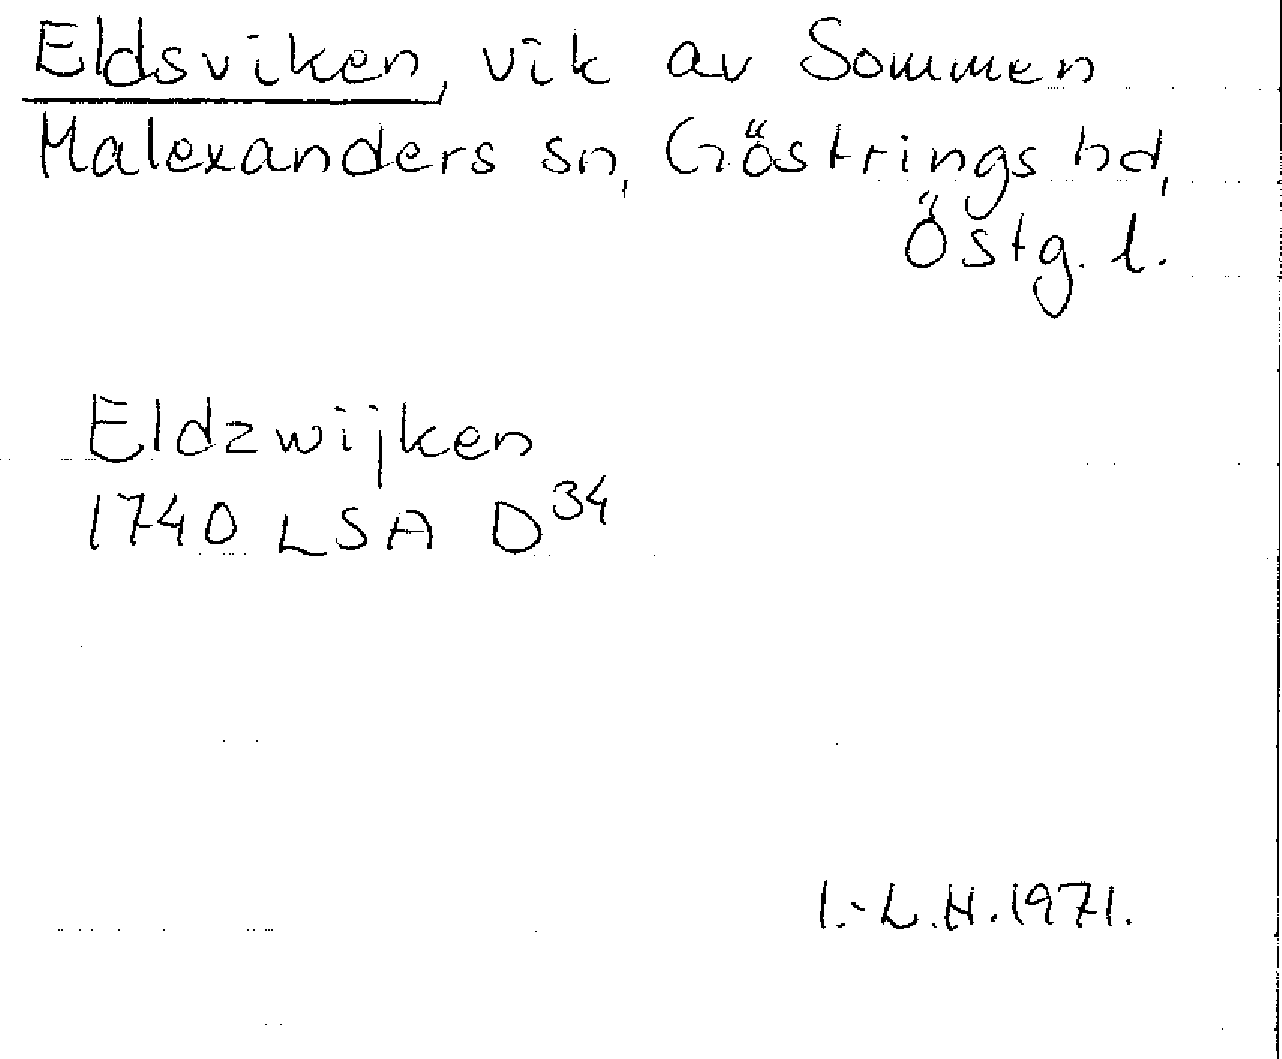 Eldsviken, vik av Sommen
Malexanders sn, Göstrings hd,
Östg. l.
Eldzwijken
1740 LSA D³⁴
I.-L.H. 1971.